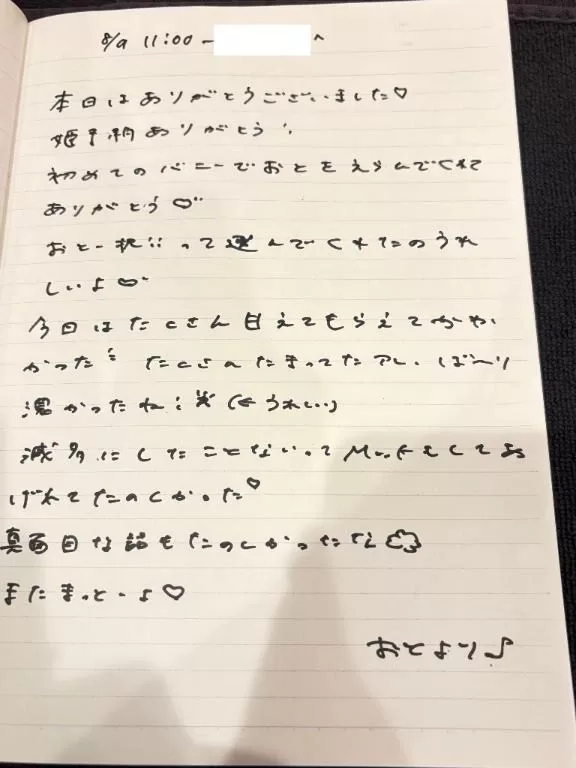 8/9 11:00 ~ へ
本日はありがとうございました♡
姫予約ありがとう!!
初めてのバニーでおとをえらんでくれて
ありがとう♡
おと一択!!って選んでくれたのうれ
しいよ♡
今日はたくさん甘えてもらえてかわい
かった!! たくさんたまってたアレ、ばーり
濃かったね! (←うれしい)
滅多にしたことないってMっ気もしてあ
げれてたのしかった♡
真面目な話もたのしかったな
またまっとーよ♡
おとより♪